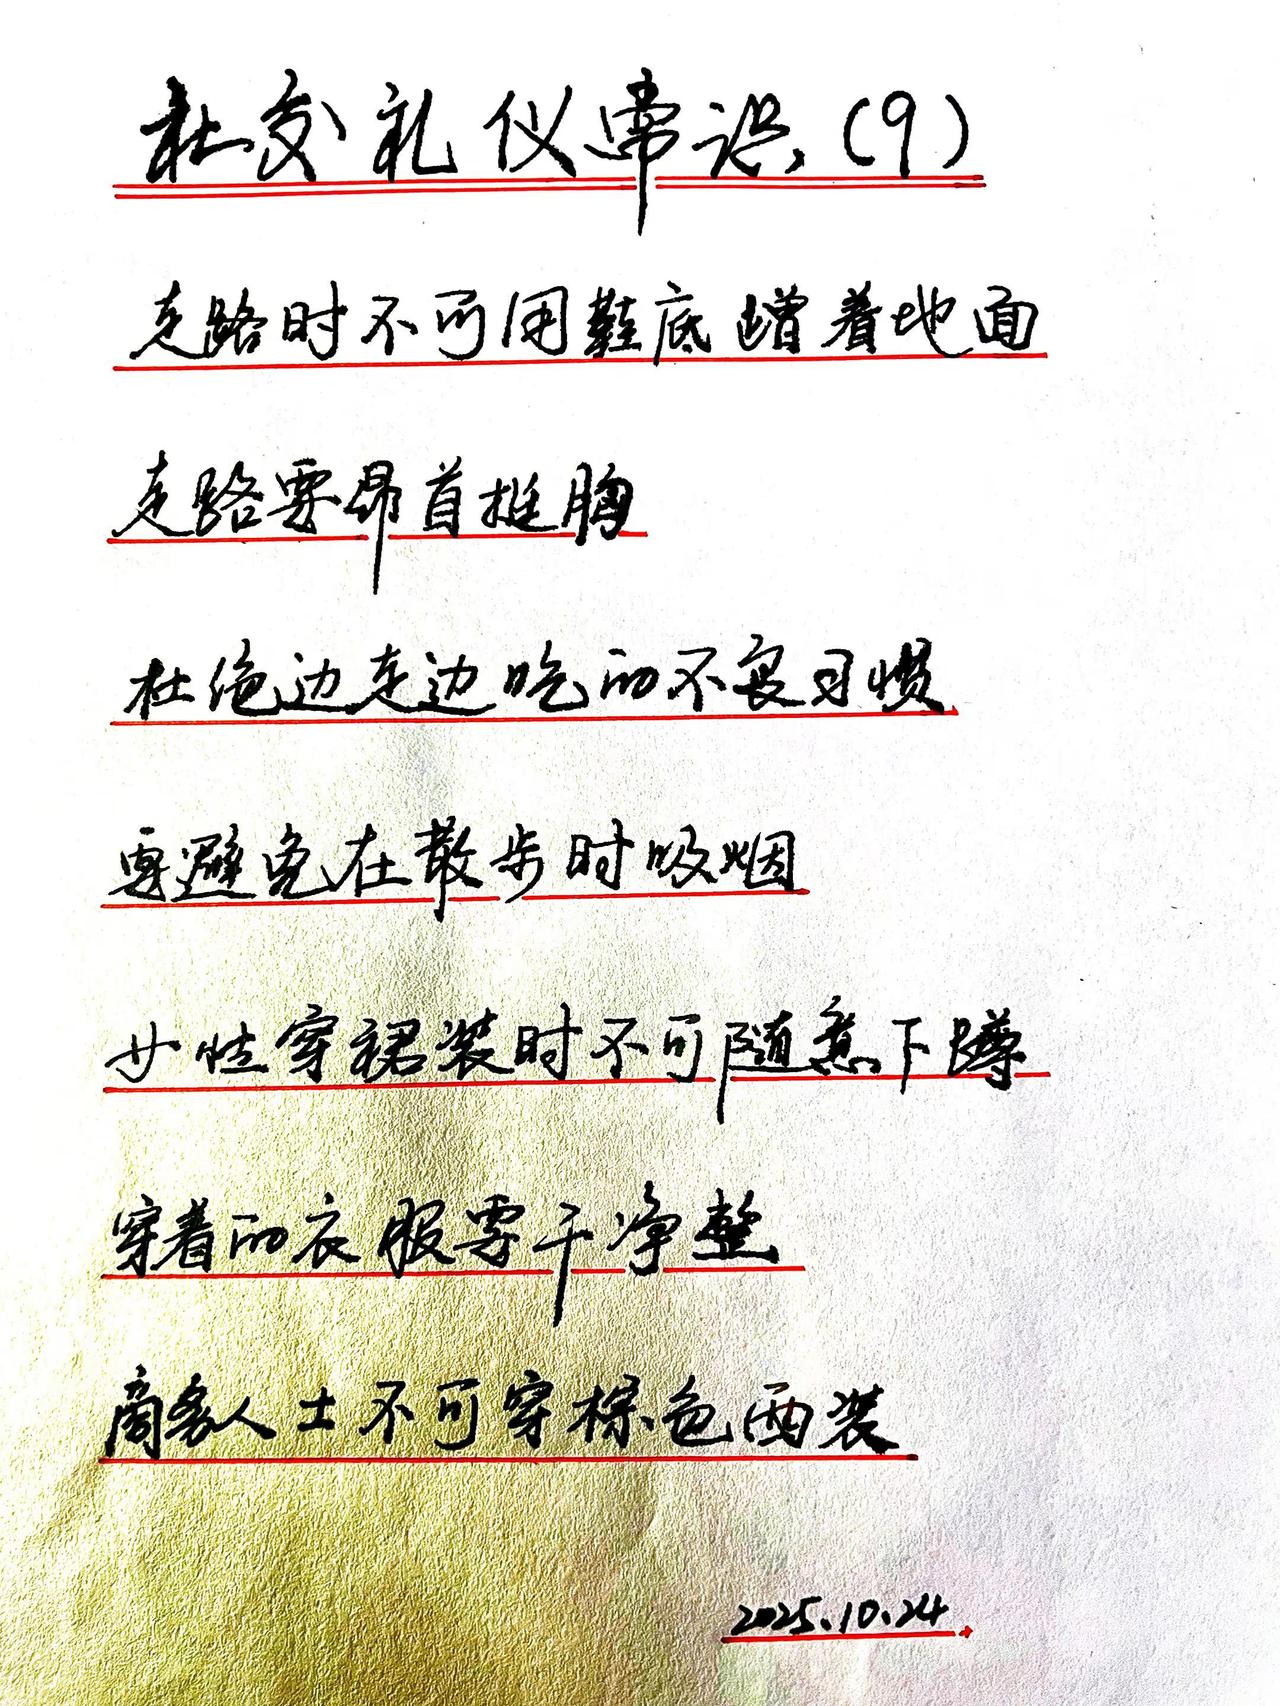 社交礼仪常识(9)
走路时不可用鞋底蹭着地面
走路要昂首挺胸
杜绝边走边吃的不良习惯
要避免在散步时吸烟
女性穿裙装时不可随意下蹲
穿着的衣服要干净整
商务人士不可穿棕色西装
2025.10.24.